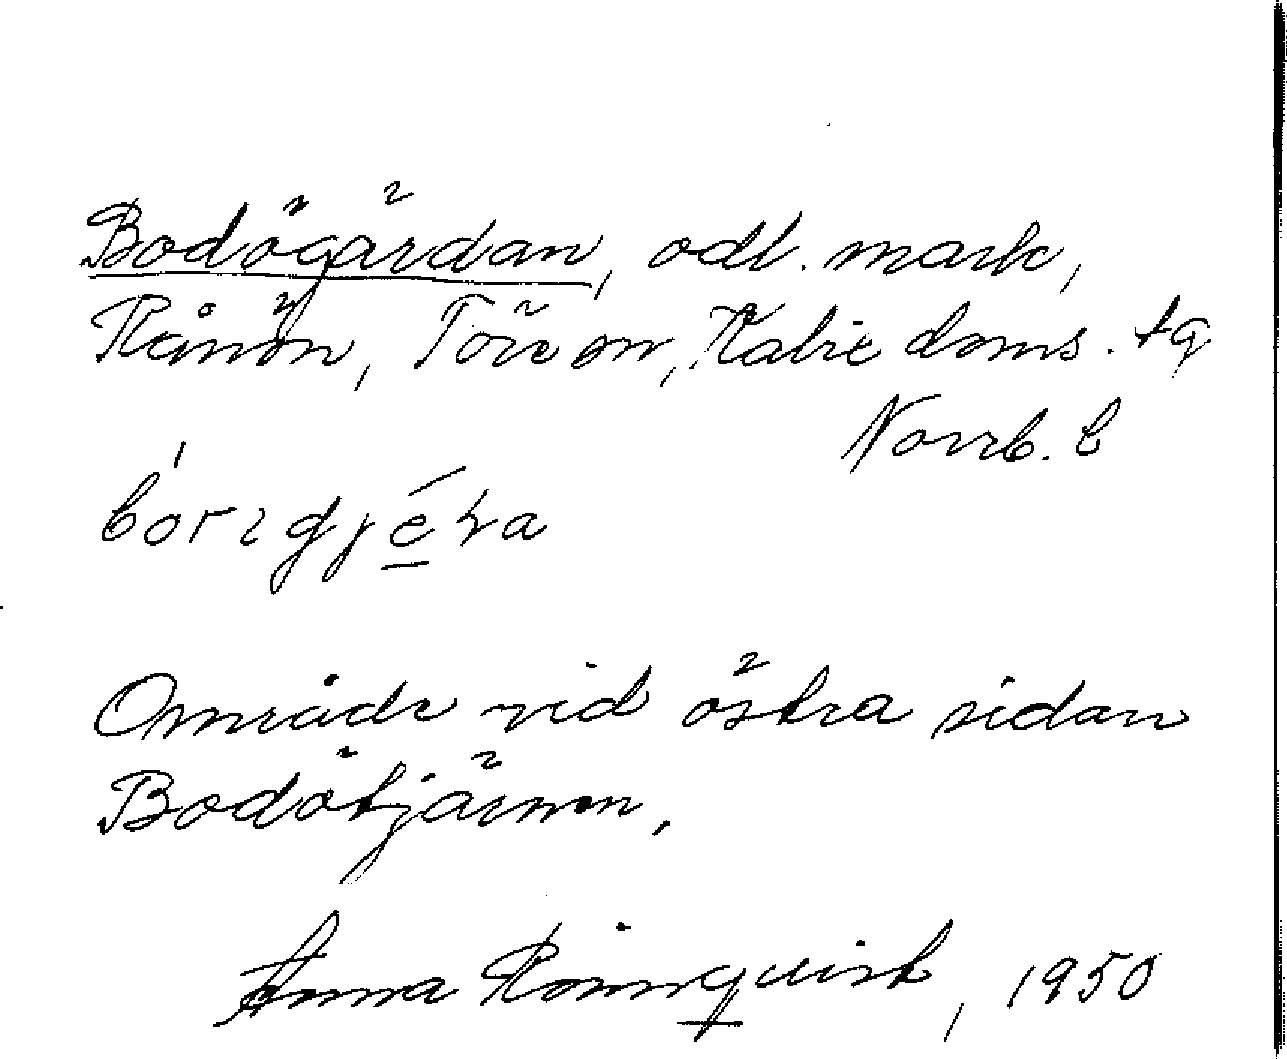 Bodögärdan, odl. mark,
Rånön, Töre sn, Kalix doms. tg
Norrb. l
Område vid östra sidan
Bodötjärnen.
Anna Rönnqvist, 1950